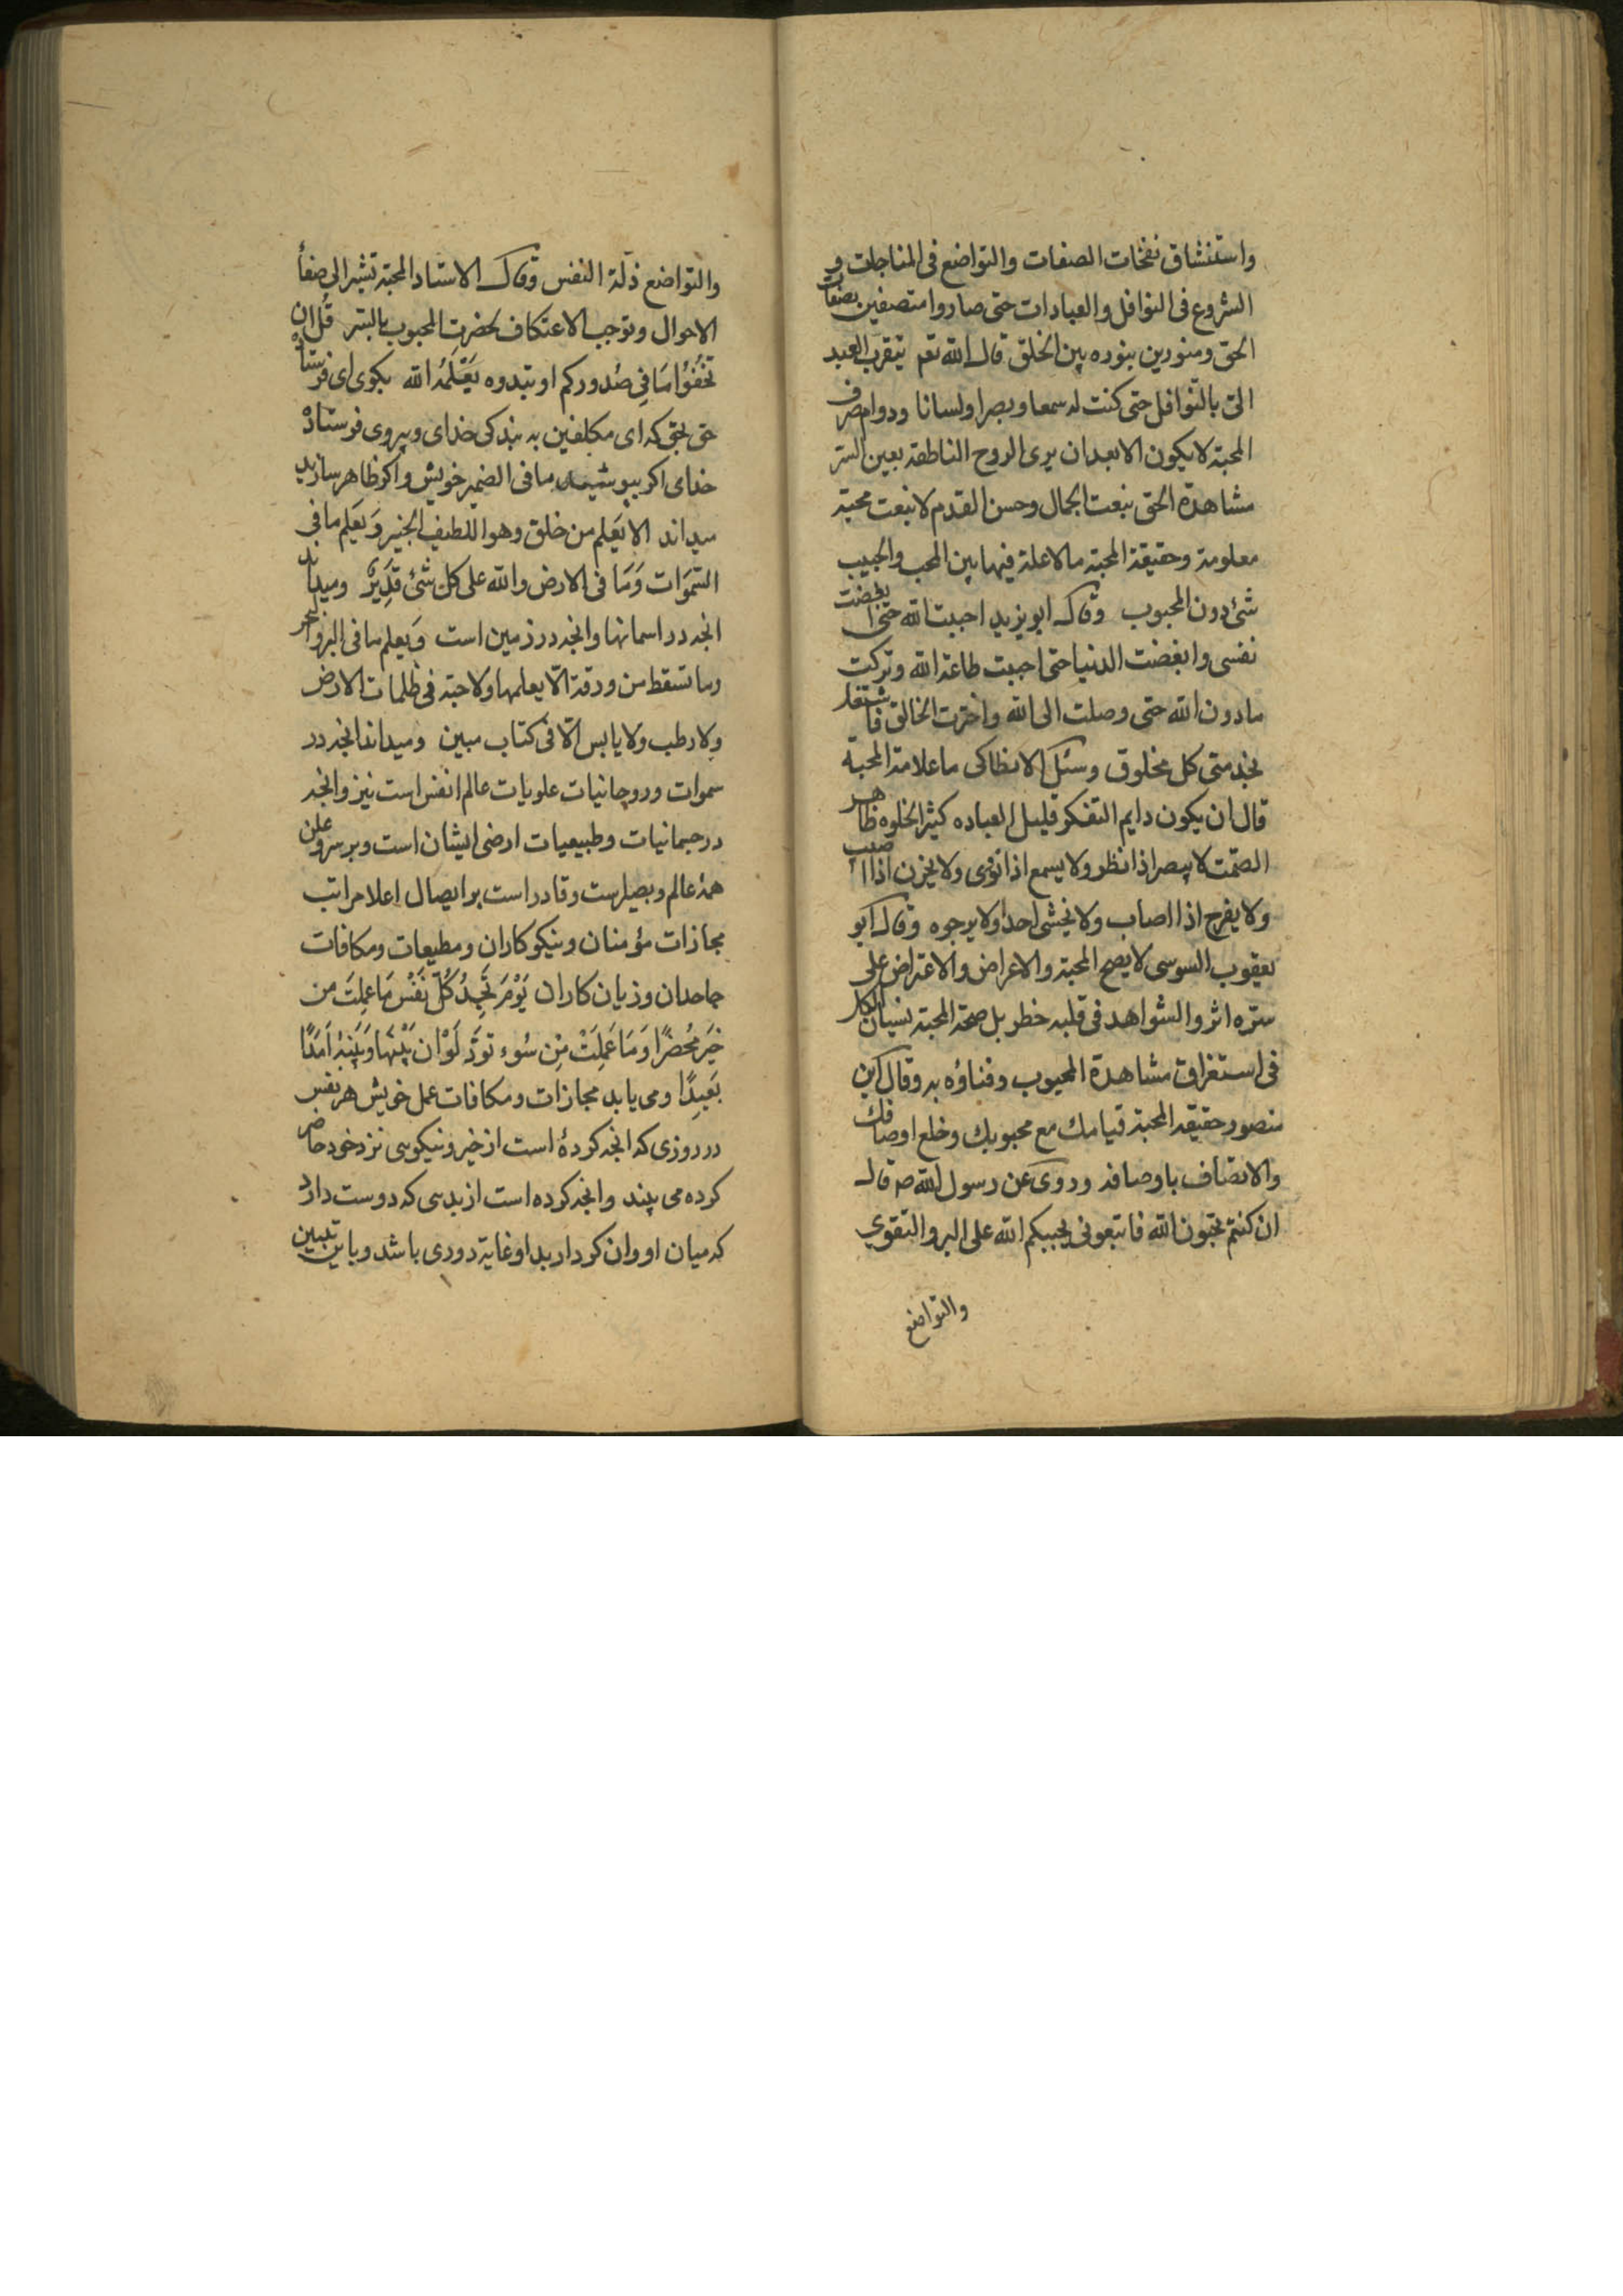 واستنشاق نفخات الصفات والتواضع فى المناجات و
الشروع فى النوافل والعبادات حتى صاروا متصفين بصفات
الحق ومنورين بنوره بين الخلق قال الله تعم يتقرب العبد
الىّ بالنوافل حتى كنت له سمعا وبصرا ولسانا ودوام صرف
المحبة لا يكون الا بعد ان يرى الروح الناطقة بعين السّر
مشاهدة الحق بنعت الجمال وحسن القدم لا بنعت محبة
معلومة وحقيقة المحبة ما لا علة فيها بين المحب والحبيب
شئ دون المحبوب وقال ابو يزيد احببت الله حتى ابغضت
نفسى وابغضت الدنيا حتى احببت طاعة الله وتركت
مادون الله حتى وصلت الى الله واخترت الخالق فاشتغل
بخدمتى كل مخلوق وسئل الانطاكى ما علامة المحبة
قال ان يكون دايم التفكر قليل العباده كثير الخلوه ظاهر
الصّمت لا يبصر اذا نظر ولا يسمع اذا نودى ولا يحزن اذا اصيب
ولا يفرح اذا اصاب ولا يخشى احدا ولا يرجوه وقال ابو
يعقوب السوسى لا يصح المحبة والاعراض والاعتراض على
سرّه اثر والشواهد فى قلبه خطر بل صحة المحبة نسيان الكل
فى استغراق مشاهدة المحبوب وفناؤه به وقال ابن
منصور حقيقة المحبة قيامك مع محبوبك وخلع اوصافك
والاتصاف باوصافه وروى عن رسول الله صه قال
ان كنتم تحبون الله فاتبعونى يحببكم الله على البر والتقوي
والتواضع
والتواضع ذلّة النفس وقال الاستاد المحبة تشير الى صفاء
الاحوال وتوجب الاعتكاف بحضرت المحبوب بالسّر قُل ان
تخفُوْا مَا فِي صُدوركم او تبدوه يَعْلَمْهُ الله بكوى اى فرستاده
حق بحق كه اى مكلفين به بندكى خداى وپيروى فرستاده
خداى اكر بپوشيد ما فى الضمير خويش واكر ظاهر سازيد
ميداند الا يَعلم من خلق وهو اللطيف الخبير وَيَعلم ما فى
السّموَات وَمَا فى الارض والله على كل شئ قَدِيرٌ وميداند
انچه در اسمانها وانچه در زمين است وَيعلم ما فى البر والبحر
وما تسقط من ورقة الّا يعلمها ولا حبة فى ظلمات الارض
ولا رطب ولا يابس الّا فى كتاب مبين وميداند انچه در
سموات وروحانيات علويات عالم انفس است نيز وانچه
در جسمانيات وطبيعيات ارضى ايشان است وبر سرو علن
همهٔ عالم وبصيراست وقادر است بر ايصال اعلا مراتب
مجازات مؤمنان ونيكوكاران ومطيعات ومكافات
جاحدان وزيان كاران يَوْمَ تَجِدُ كُلّ نَفْسٍ مَا عمِلَتْ من
خَيْر مُحْضرًا وَمَا عَمِلَتْ مِن سُوء توَدُّ لَوْ ان بَيْنَهَا وَبَيْنَهُ اَمَدًا
بَعِيدًا ومى يابد مجازات ومكافات عمل خويش هر نفس
در روزى كه انچه كردۀ است از خير ونيكويى نزد خود حاضر
كرده مى بيند وانچه كرده است از بدى كه دوست دارد
كه ميان او وان كردار بد او غاية دورى باشد وباين تبيين